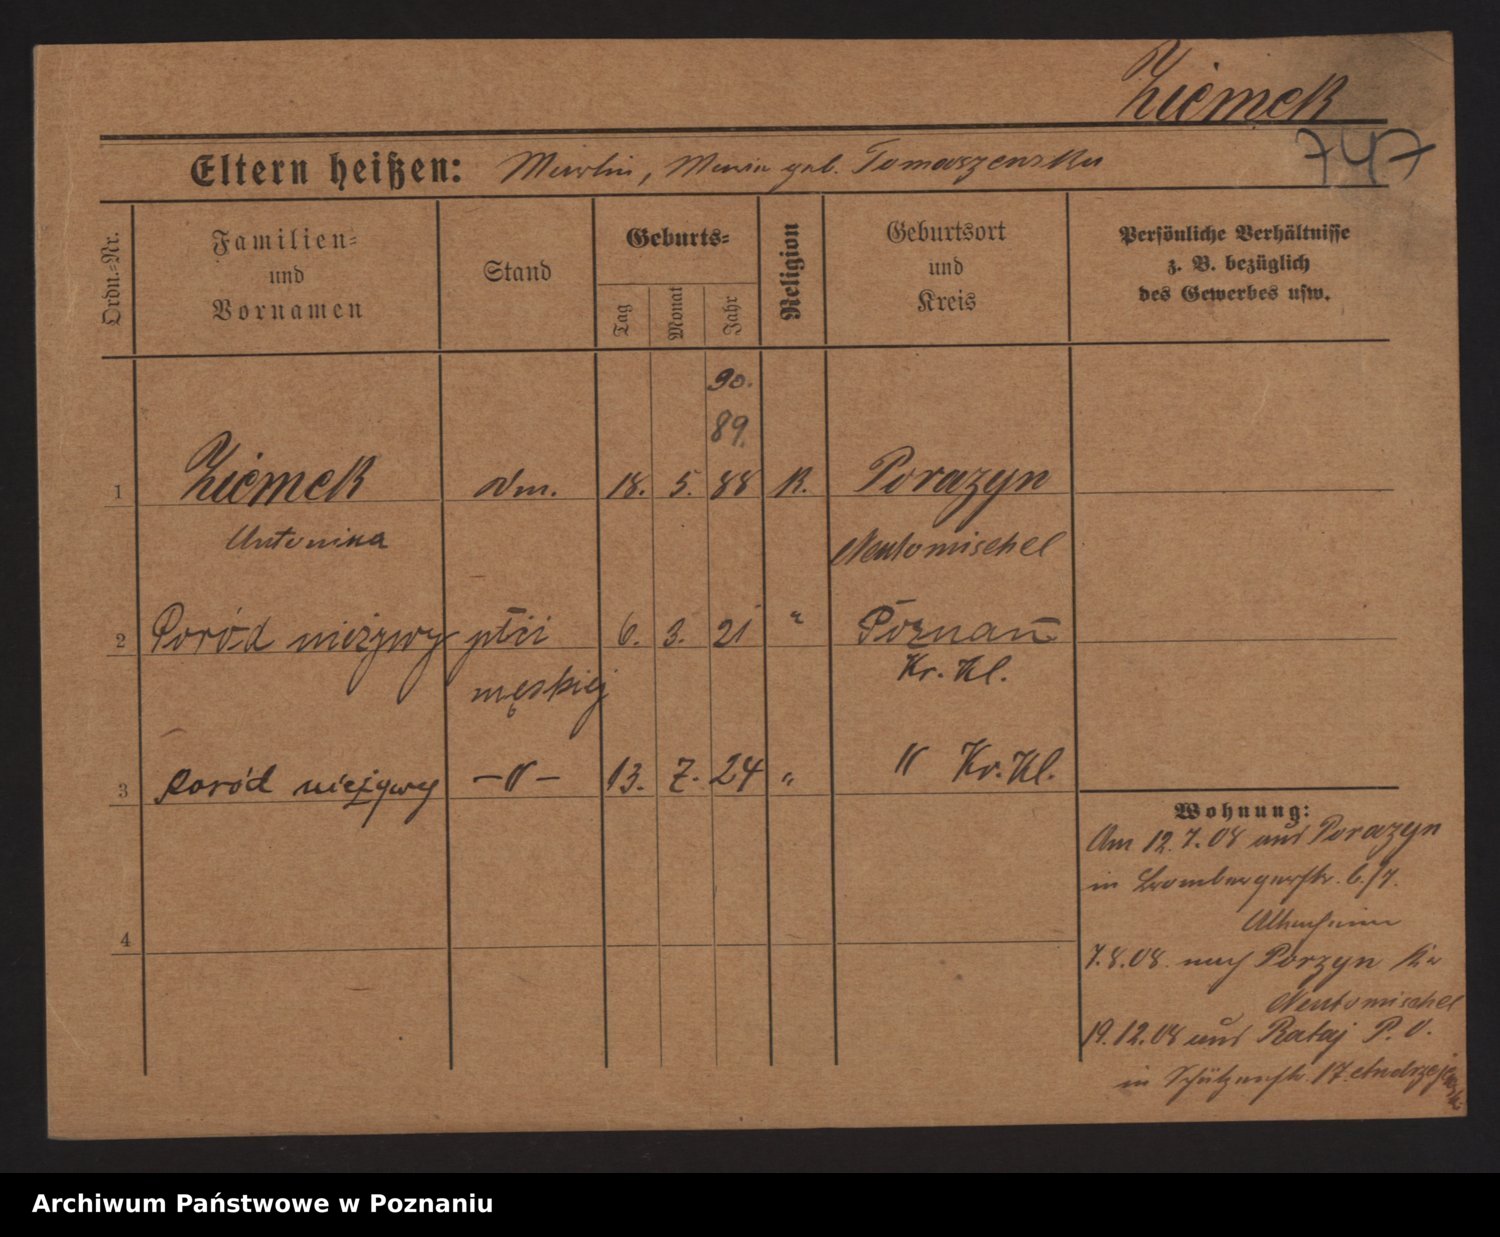 Ziemek
747
Eltern heißen: Martin, Maria geb. Tomaszewska
Ordn.-Nr.
Familien-
und
Vornamen
Stand
Geburts-
Tag
Monat
Jahr
Religion
Geburtsort
und
Kreis
Persönliche Verhältnisse
z. B. bezüglich
des Gewerbes usw.
90.
89.
1 Ziemek 18. 5. 88 K. Porazyn
Antonina Neutomischel
2 Poród nieżywy płci 6. 3. 21 " Poznań
męskiej Kr. Kl.
3 Poród nieżywy —"— 13. 7. 24 " " Kr. Kl.
4
Wohnung:
Am 12.7.08 aus Porazyn
in Brombergerstr. 6/7.
7.8.08. nach Porzyn Kr
Neutomischel
19.12.08 aus Rataj P. O.
in Schützenstr. 17.
Archiwum Państwowe w Poznaniu